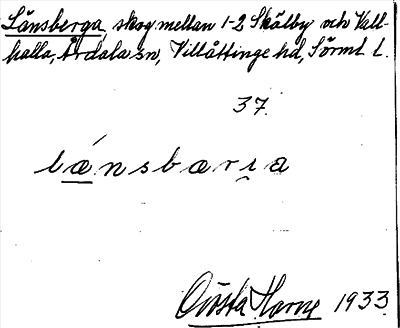 Länsberga, skog mellan 1-2 Skälby och Vall-
halla, Årdala sn, Villåttinge hd, Sörml. l.
37.
lǽnsbærı̯a
Gösta Horne 1933